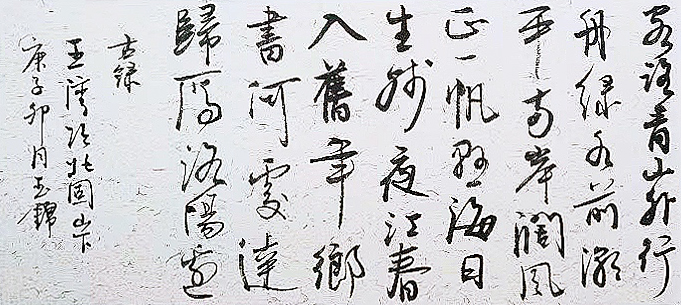 客路青山外行
舟緑水前潮
平兩岸闊風
正一帆懸海日
生殘夜江春
入舊年鄉
書何處達
歸雁洛陽邊
右録
王灣次北固山下
庚子卯月玉錦